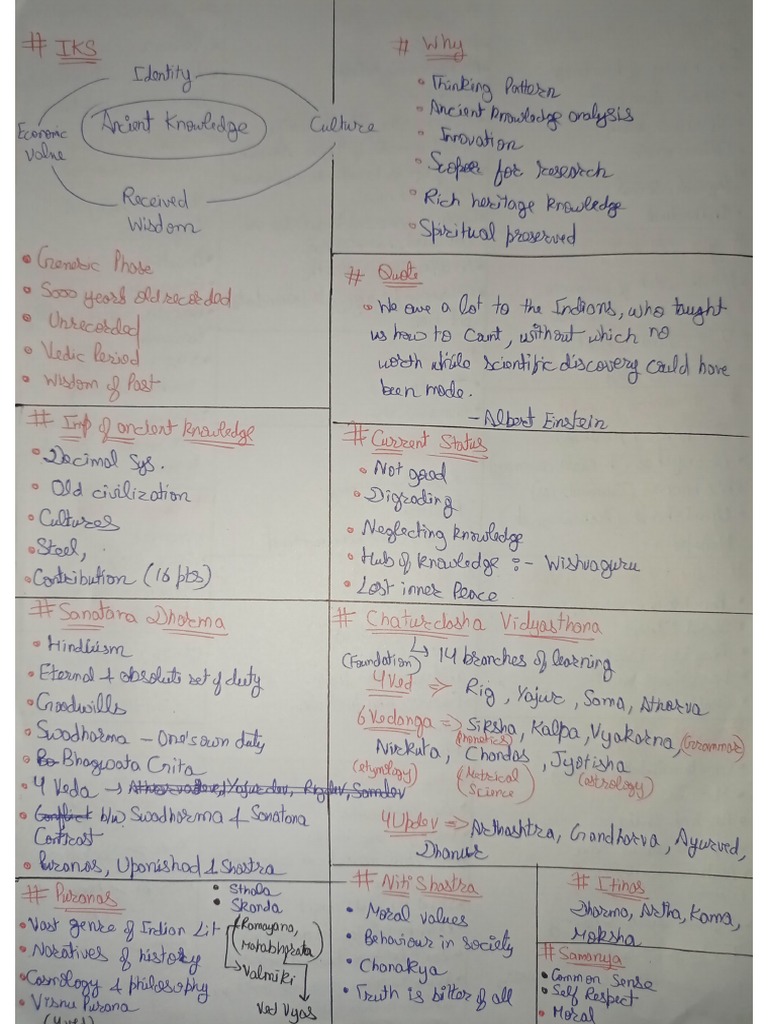 # IKS
Identity
Economic Value
Ancient Knowledge
Culture
Received
Wisdom
• Genetic Phase
• 5000 years old recorded
• Unrecorded
• Vedic Period
• Wisdom of Past
# Why
• Thinking Pattern
• Ancient knowledge analysis
• Innovation
• Scope for research
• Rich heritage knowledge
• Spiritual preserved
# Quote
• We owe a lot to the Indians, who taught
us how to count, without which no
worth while scientific discovery could have
been made.
- Albert Einstein
# Imp of ancient knowledge
• Decimal Sys.
• Old civilization
• Cultures
• Steel,
• Contribution (16 pts)
# Current Status
• Not good
• Digrading
• Neglecting knowledge
• Hub of knowledge :- Wishvaguru
• Lost inner Peace
# Sanatana Dharma
• Hinduism
• Eternal & absolute set of duty
• Goodwills
• Swadharma - One's own duty
• Bhagwata Grita
• 4 Veda → Atharvadev, Yajurdev, Rigdev, Samdev
• Conflict b/w Swadharma & Sanatana
Contrast
• Puranas, Upanishad & Shastra
# Chaturdasha Vidyasthana
(Foundation) ↳ 14 branches of learning
4 Ved ⇒ Rig, Yajur, Sama, Atharva
6 Vedanga ⇒ Siksha, Kalpa, Vyakarna, (Grammar)
(Phonetics)
Nirkuta, Chandas, Jyotisha
(etymology) (Metrical Science) (astrology)
4 Updev ⇒ Arthashtra, Gandharva, Ayurved,
Dhanur
# Puranas
• Sthala
• Skanda
• Vast genre of Indian Lit
• Naratives of history
• Cosmology & philosophy
• Visnu Purana
(Ramayana,
Mahabharata)
→ Valmiki
Ved Vyas
# Niti Shastra
• Moral values
• Behaviour in society
• Chanakya
• Truth is bitter of all
# Itihas
Dharma, Artha, Kama,
Moksha
# Samanya
• Common Sense
• Self Respect
• Moral